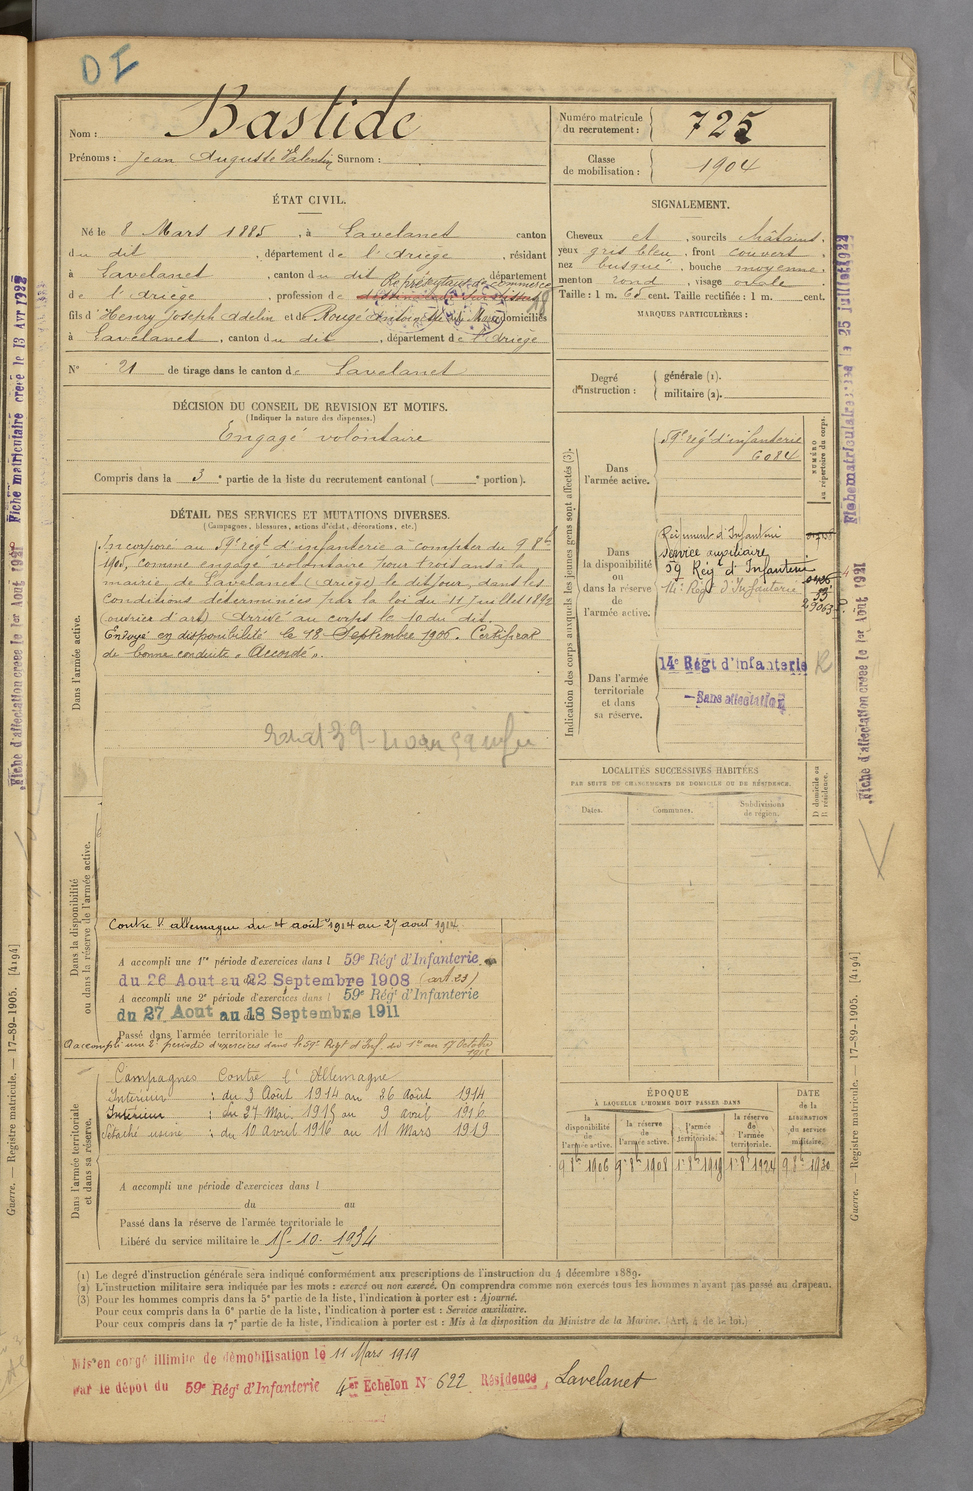 DI
Nom : Bastide
Prénoms : Jean Auguste Valentin Surnom :
Numéro matricule du recrutement : 725
Classe de mobilisation : 1904
ÉTAT CIVIL.
Né le 8 Mars 1885, à Lavelanet canton
du dit, département de l'Ariège, résidant
à Lavelanet, canton du dit département
Représentant de commerce
de l'Ariège, profession de
fils d'Henry Joseph Adelin et de Rouge Antoinette domiciliés
à Lavelanet, canton du dit, département de l'Ariège
N° 21 de tirage dans le canton de Lavelanet
DÉCISION DU CONSEIL DE REVISION ET MOTIFS.
(Indiquer la nature des dispenses.)
Engagé volontaire
Compris dans la 3e partie de la liste du recrutement cantonal ( e portion).
DÉTAIL DES SERVICES ET MUTATIONS DIVERSES.
(Campagnes, blessures, actions d'éclat, décorations, etc.)
Dans l'armée active.
Incorporé au 59e régt d'infanterie à compter du 9 8bre
1905, comme engagé volontaire pour trois ans à la
mairie de Lavelanet (Ariège) le dit jour, dans les
conditions déterminées par la loi du 11 Juillet 1892
(ouvrier d'art) Arrivé au corps le 10 du dit.
Envoyé en disponibilité le 18 Septembre 1906. Certificat
de bonne conduite « Accordé ».
Dans la disponibilité
ou dans la réserve de l'armée active.
Contre l'allemagne du 4 août 1914 au 27 aout 1914.
A accompli une 1re période d'exercices dans l 59e Régt d'Infanterie
du 26 Aout au 22 Septembre 1908 (art. 23)
A accompli une 2e période d'exercices dans l 59e Régt d'Infanterie
du 27 Aout au 18 Septembre 1911
Passé dans l'armée territoriale le
A accompli une 2e période d'exercices dans le 59e Régt d'Inf. du 1er au 17 Octobre
Dans l'armée territoriale
et dans sa réserve.
Campagnes Contre l'Allemagne
Intérieur : du 3 Août 1914 au 26 août 1914
Intérieur : du 27 Mai 1915 au 9 avril 1916
Détaché usine : du 10 Avril 1916 au 11 Mars 1919
A accompli une période d'exercices dans l
du au
Passé dans la réserve de l'armée territoriale le
Libéré du service militaire le 15-10-1934
SIGNALEMENT.
Cheveux et, sourcils châtains,
yeux gris bleu, front couvert,
nez busqué, bouche moyenne,
menton rond, visage ovale.
Taille : 1 m. 65 cent. Taille rectifiée : 1 m. cent.
MARQUES PARTICULIÈRES :
Degré d'instruction :
générale (1).
militaire (2).
Indication des corps auxquels les jeunes gens sont affectés (3).
NUMÉRO
au répertoire du corps.
Dans
l'armée active.
59e régt d'infanterie
6084
Dans
la disponibilité
ou
dans la réserve
de
l'armée active.
Régiment d'Infanterie
service auxiliaire
59 Régt d'Infanterie
14e Régt d'Infanterie
Dans l'armée
territoriale
et dans
sa réserve.
14e Régt d'infanterie R
Sans affectation
LOCALITÉS SUCCESSIVES HABITÉES
PAR SUITE DE CHANGEMENTS DE DOMICILE OU DE RÉSIDENCE.
Dates.
Communes.
Subdivisions de région.
D domicile ou
R résidence.
ÉPOQUE
À LAQUELLE L'HOMME DOIT PASSER DANS
DATE
de la
LIBÉRATION
du service
militaire.
la disponibilité de l'armée active.
la réserve de l'armée active.
l'armée territoriale.
la réserve de l'armée territoriale.
9 8bre 1906
9 8bre 1908
1er 8bre 1919
1er 8bre 1924
9 8bre 1930
(1) Le degré d'instruction générale sera indiqué conformément aux prescriptions de l'instruction du 4 décembre 1889.
(2) L'instruction militaire sera indiquée par les mots : exercé ou non exercé. On comprendra comme non exercés tous les hommes n'ayant pas passé au drapeau.
(3) Pour les hommes compris dans la 5e partie de la liste, l'indication à porter est : Ajourné.
Pour ceux compris dans la 6e partie de la liste, l'indication à porter est : Service auxiliaire.
Pour ceux compris dans la 7e partie de la liste, l'indication à porter est : Mis à la disposition du Ministre de la Marine. (Art. 4 de la loi.)
Mis en congé illimité de démobilisation le 11 Mars 1919
par le dépôt du 59e Régt d'Infanterie 4er Echelon N° 622 Résidence, Lavelanet
Fiche matriculaire créée le 25 juillet 1922
Fiche d'affectation créée le 1er Août 1921
Guerre. — Registre matricule. — 17-89-1905. [4194]
Fiche matriculaire créée le 13 Avr 1922
Fiche d'affectation créée le 1er Août 1921
Guerre. — Registre matricule. — 17-89-1905. [4194]